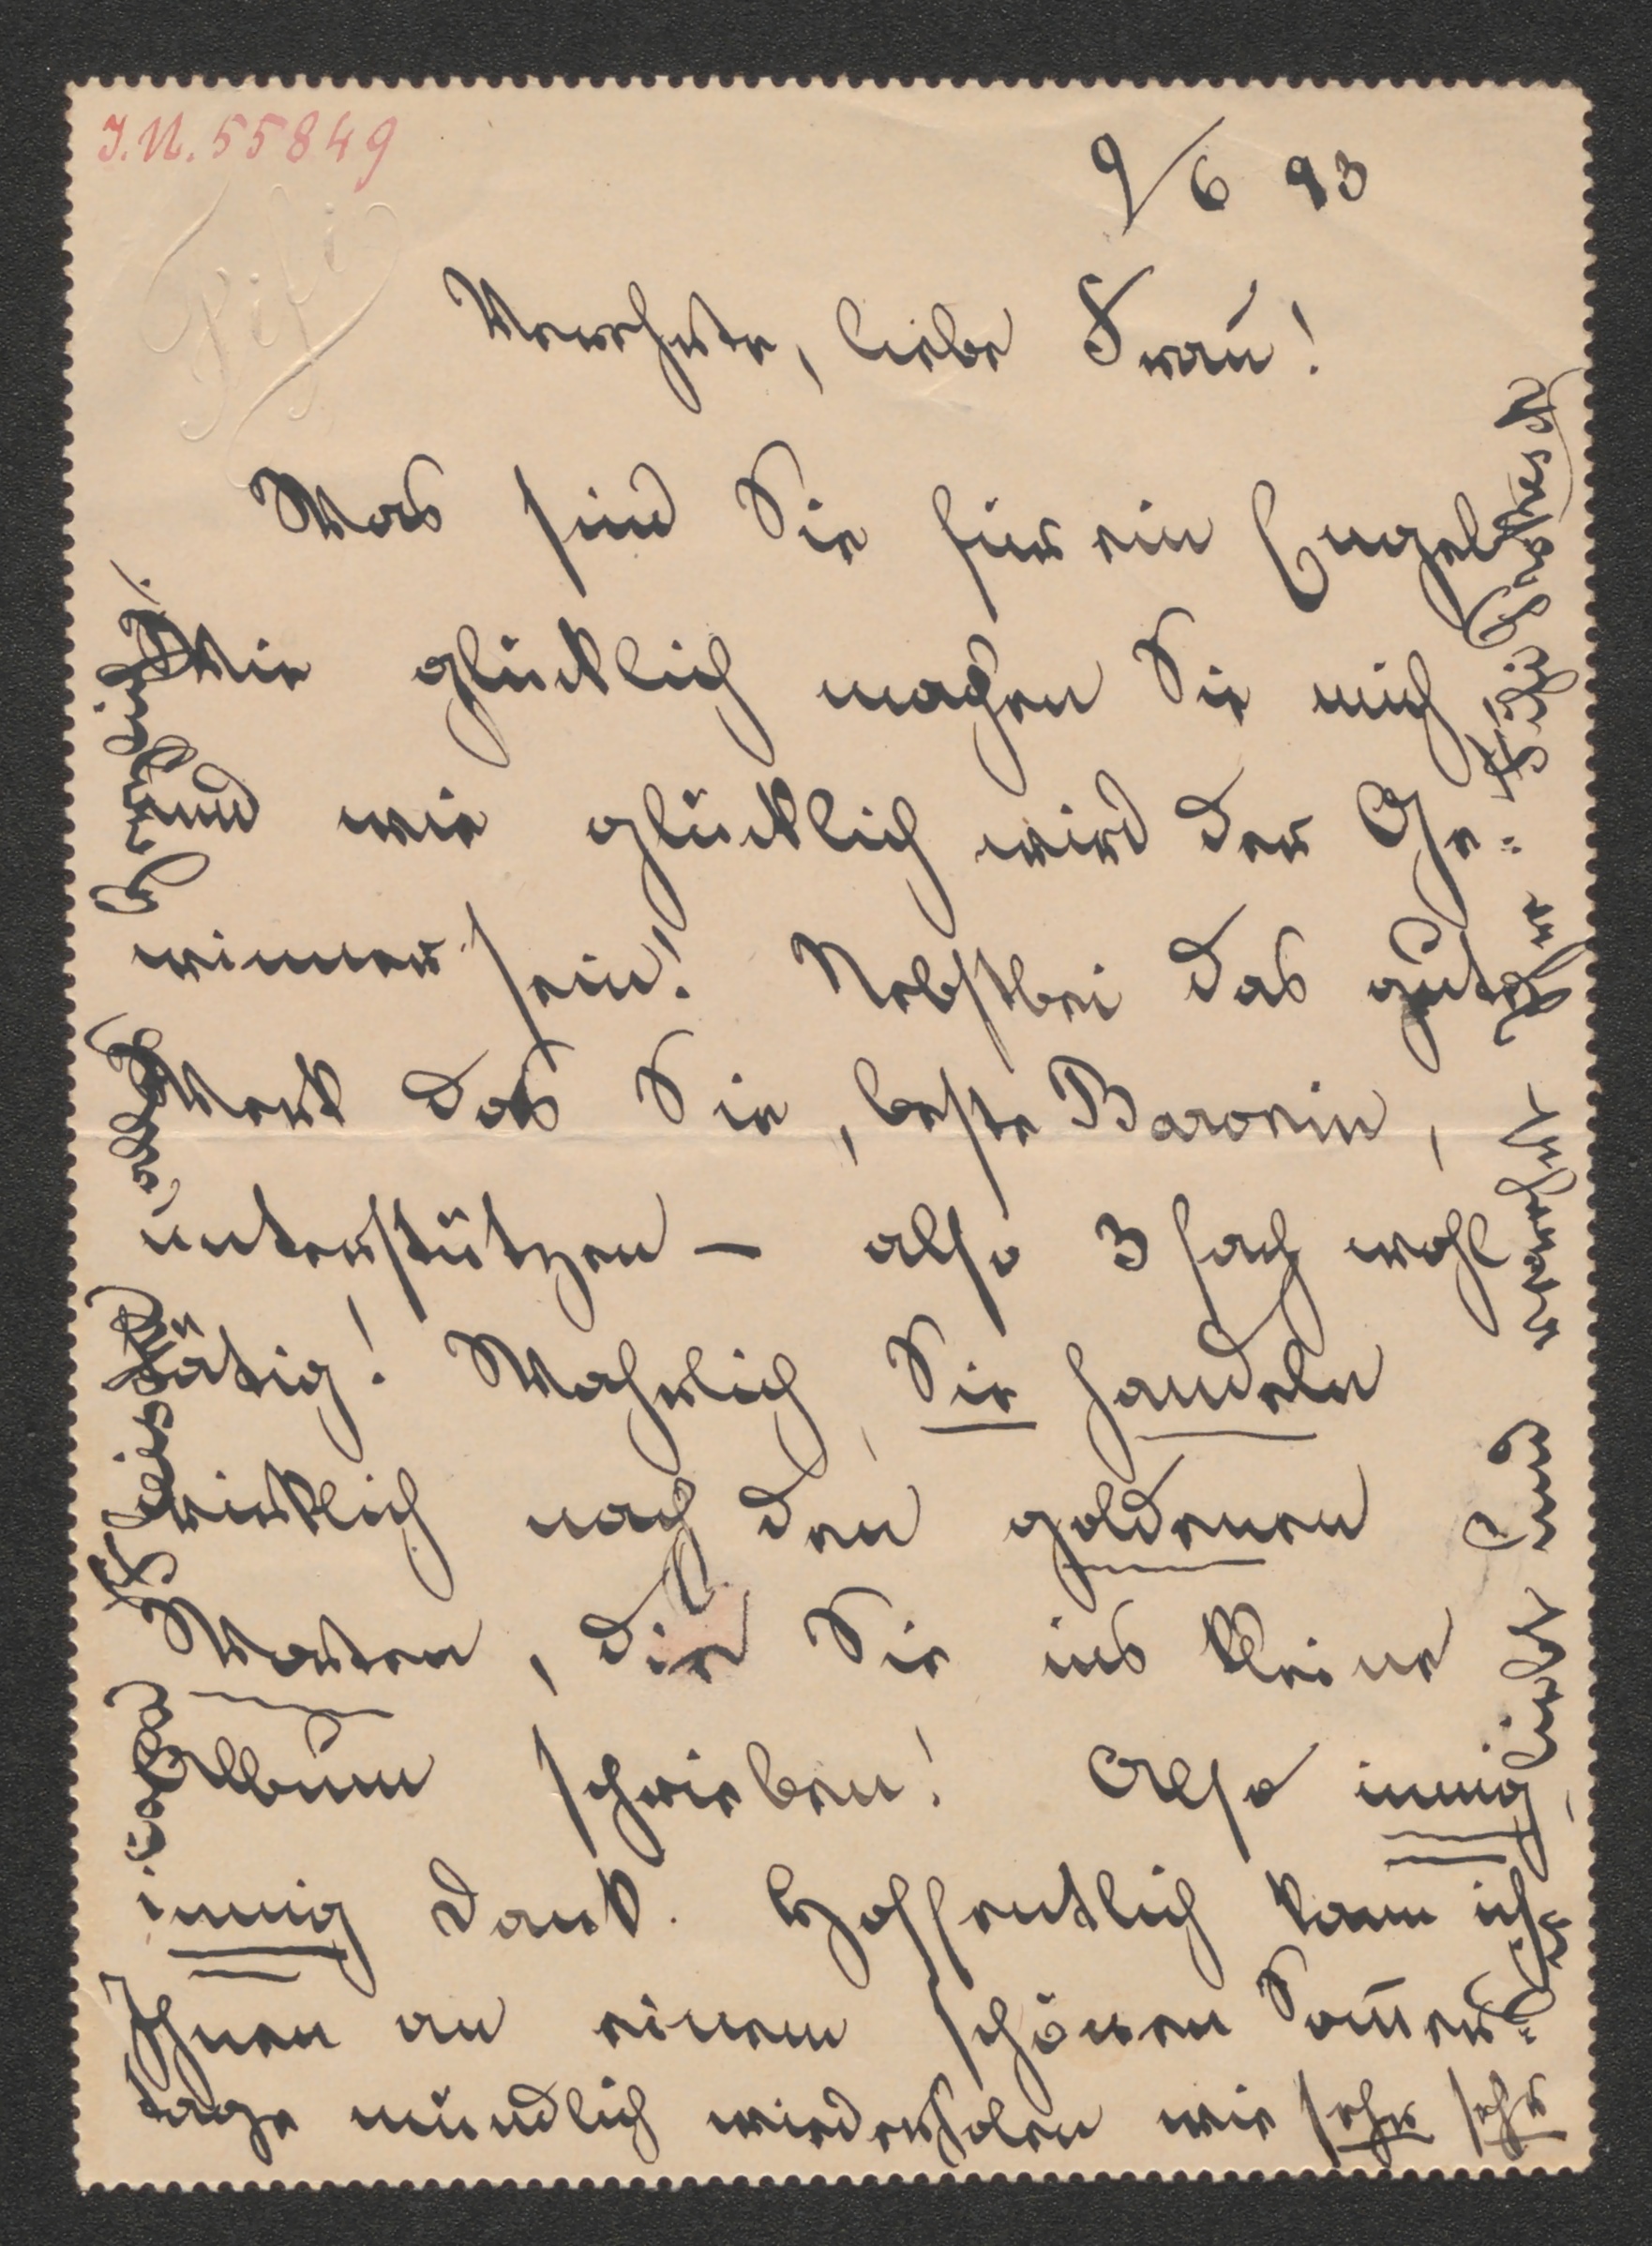 J.N. 55849
Fifi
9/6 93
Verehrte, liebe Frau!
Was sind Sie für ein Engel
Wie glücklich machen Sie mich
und wie glücklich wird der Ge-
winner sein! Nebstbei das gute
Werk das Sie, beste Baronin,
unterstützen – also 3fach wohl
tätig! Wahrlich, Sie handeln
wirklich nach den goldenen
Worten, die Sie ins kleine
Album schrieben! Also innig,
innig Dank. Hoffentlich kann ich
Ihnen an einem schönen Som̅er-
tage mündlich wiederholen wie sehr sehr
Sie liebt und verehrt Ihre